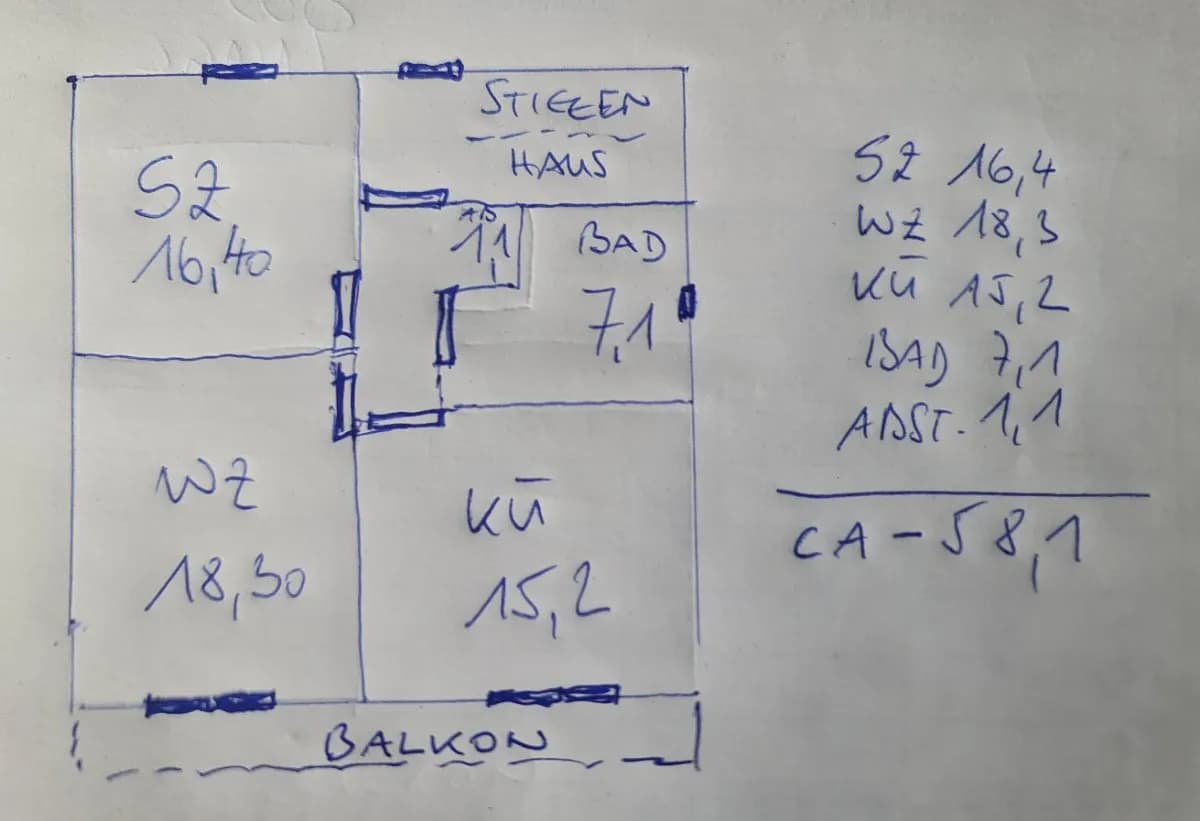 STIEGEN
HAUS
SZ
16,40
AB
1,1
BAD
7,1
WZ
18,30
KÜ
15,2
BALKON
SZ 16,4
WZ 18,3
KÜ 15,2
BAD 7,1
ABST. 1,1
CA - 58,1